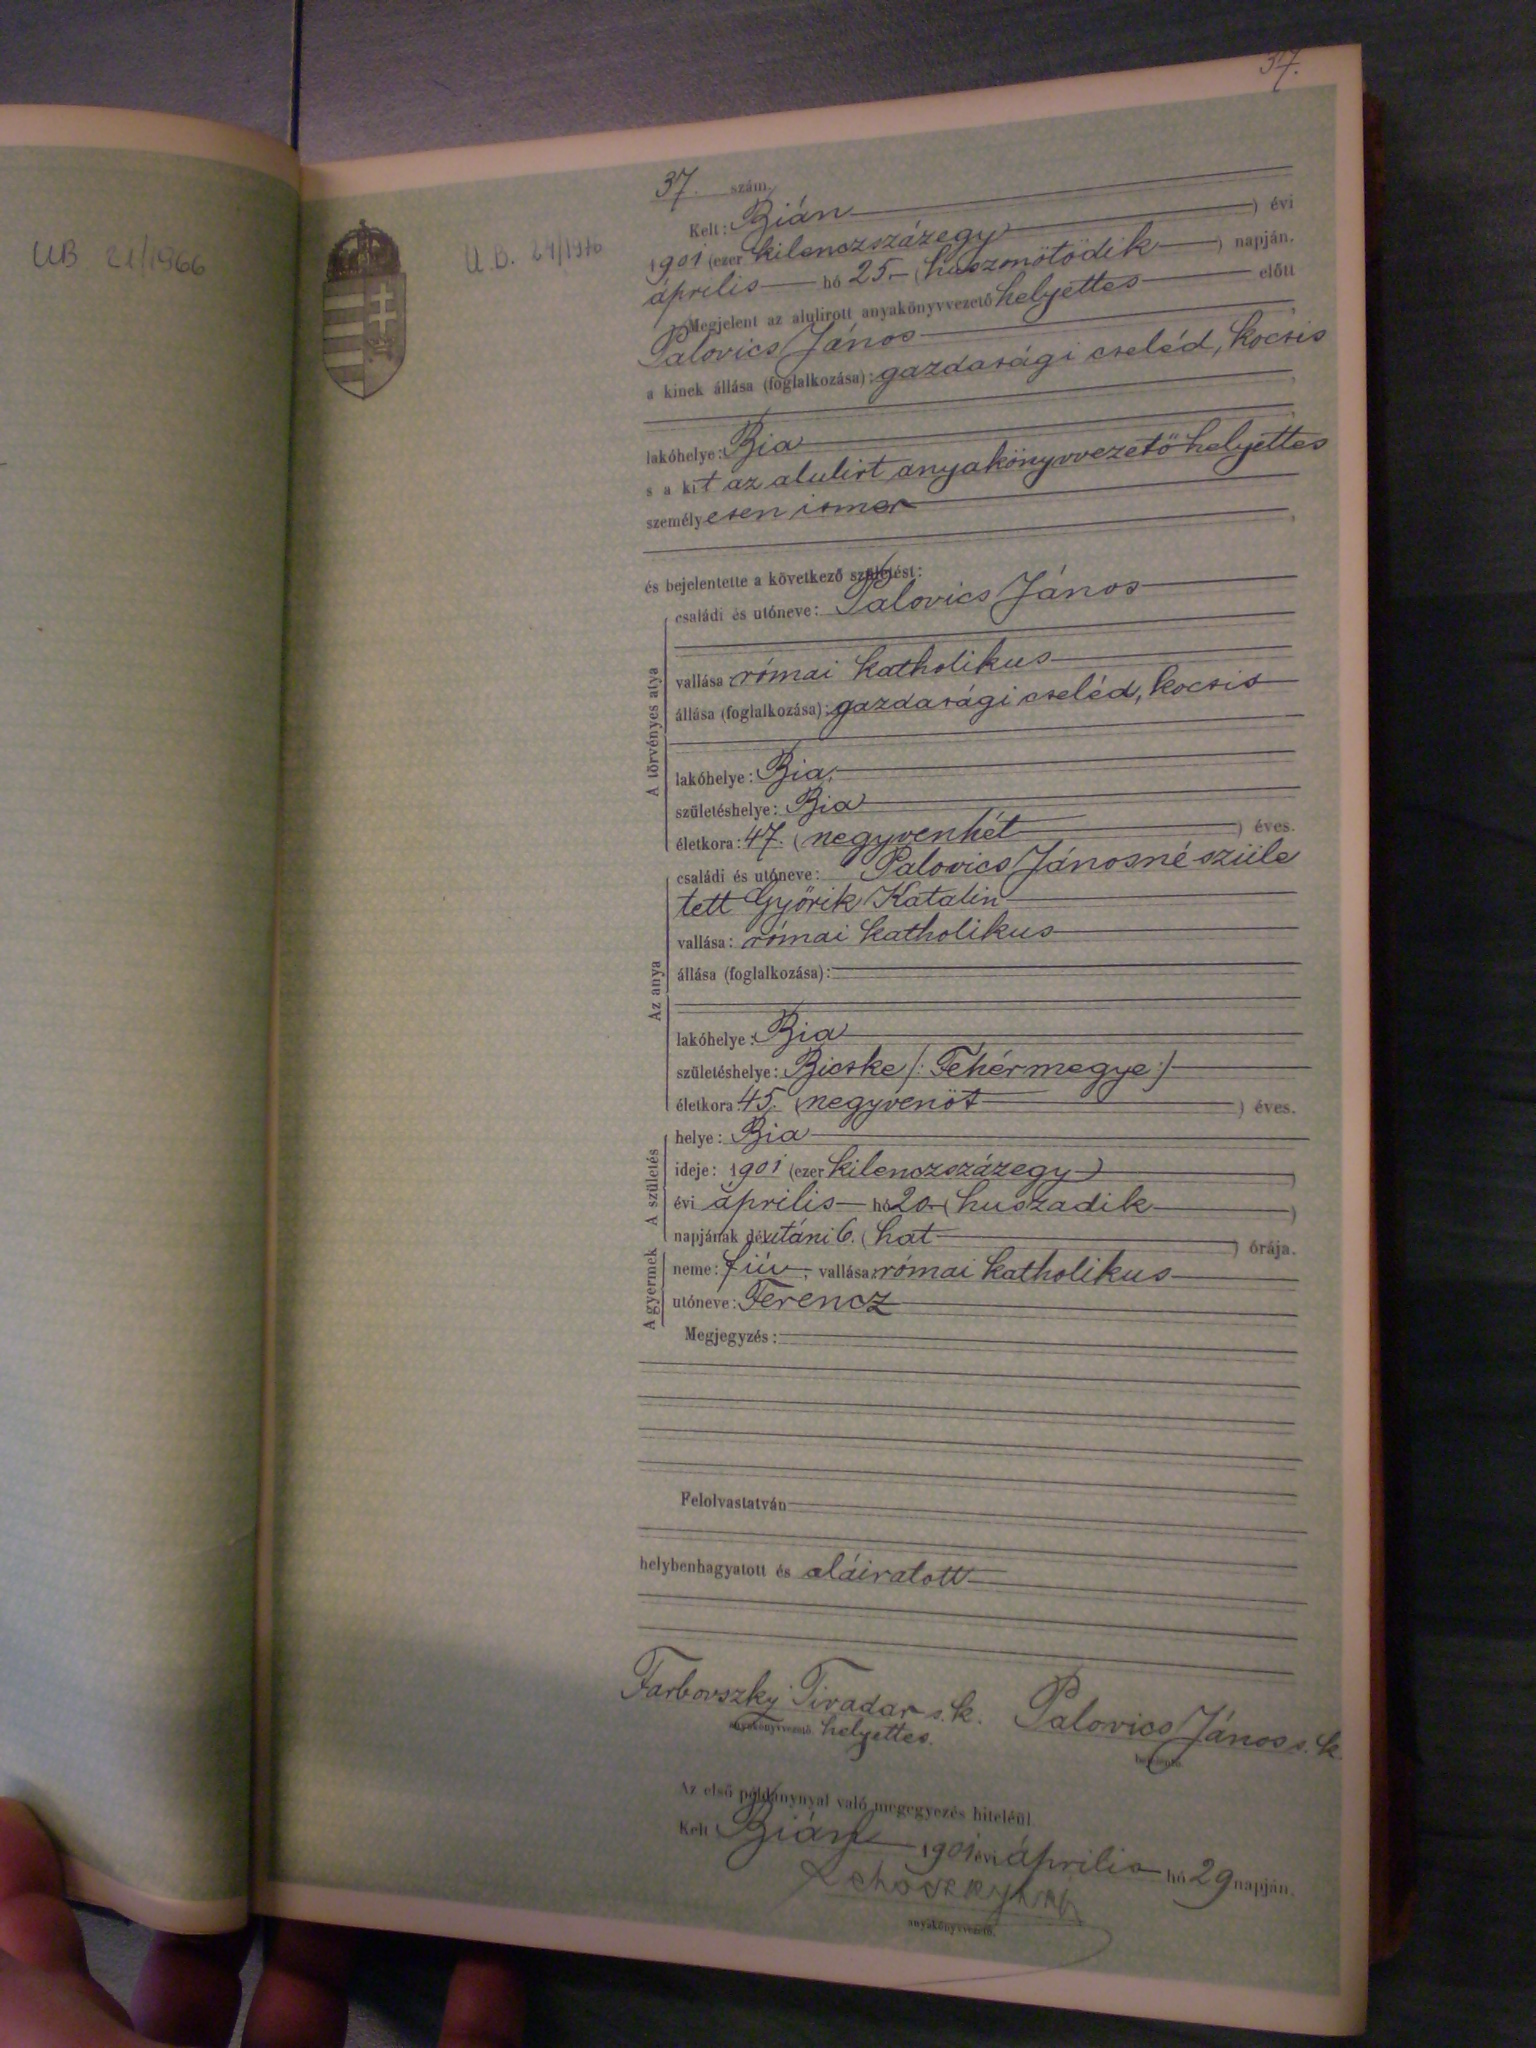 UB 21/1966
U.B. 24/1976
37.
37. szám.
Kelt: Bián ) évi
1901 (ezer kilenczszázegy
április hó 25. (huszonötödik ) napján.
Megjelent az alulirott anyakönyvvezető helyettes előtt
Palovics János
a kinek állása (foglalkozása): gazdasági cseléd, kocsis
lakóhelye: Bia
s a kit az alulirt anyakönyvvezető helyettes
személyesen ismer
és bejelentette a következő születést:
A törvényes atya
családi és utóneve: Palovics János
vallása római katholikus
állása (foglalkozása): gazdasági cseléd, kocsis
lakóhelye: Bia
születéshelye: Bia
életkora: 47. (negyvenhét ) éves.
Az anya
családi és utóneve: Palovics Jánosné szüle
tett Győrik Katalin
vallása: római katholikus
állása (foglalkozása):
lakóhelye: Bia
születéshelye: Bicske /: Fehérmegye :/
életkora: 45. (negyvenöt ) éves.
A születés
helye: Bia
ideje: 1901 (ezer kilenczszázegy )
évi április hó 20. (huszadik )
napjának délutáni 6. (hat ) órája.
A gyermek
neme: fiú, vallása: római katholikus
utóneve: Ferencz
Megjegyzés:
Felolvastatván
helybenhagyatott és aláiratott
Farbovszky Tivadar s.k. Palovics János s.k.
anyakönyvvezető helyettes. bejelentő.
Az első példánynyal való megegyezés hiteléül
Kelt Bián 1901 évi április hó 29 napján.
anyakönyvvezető.